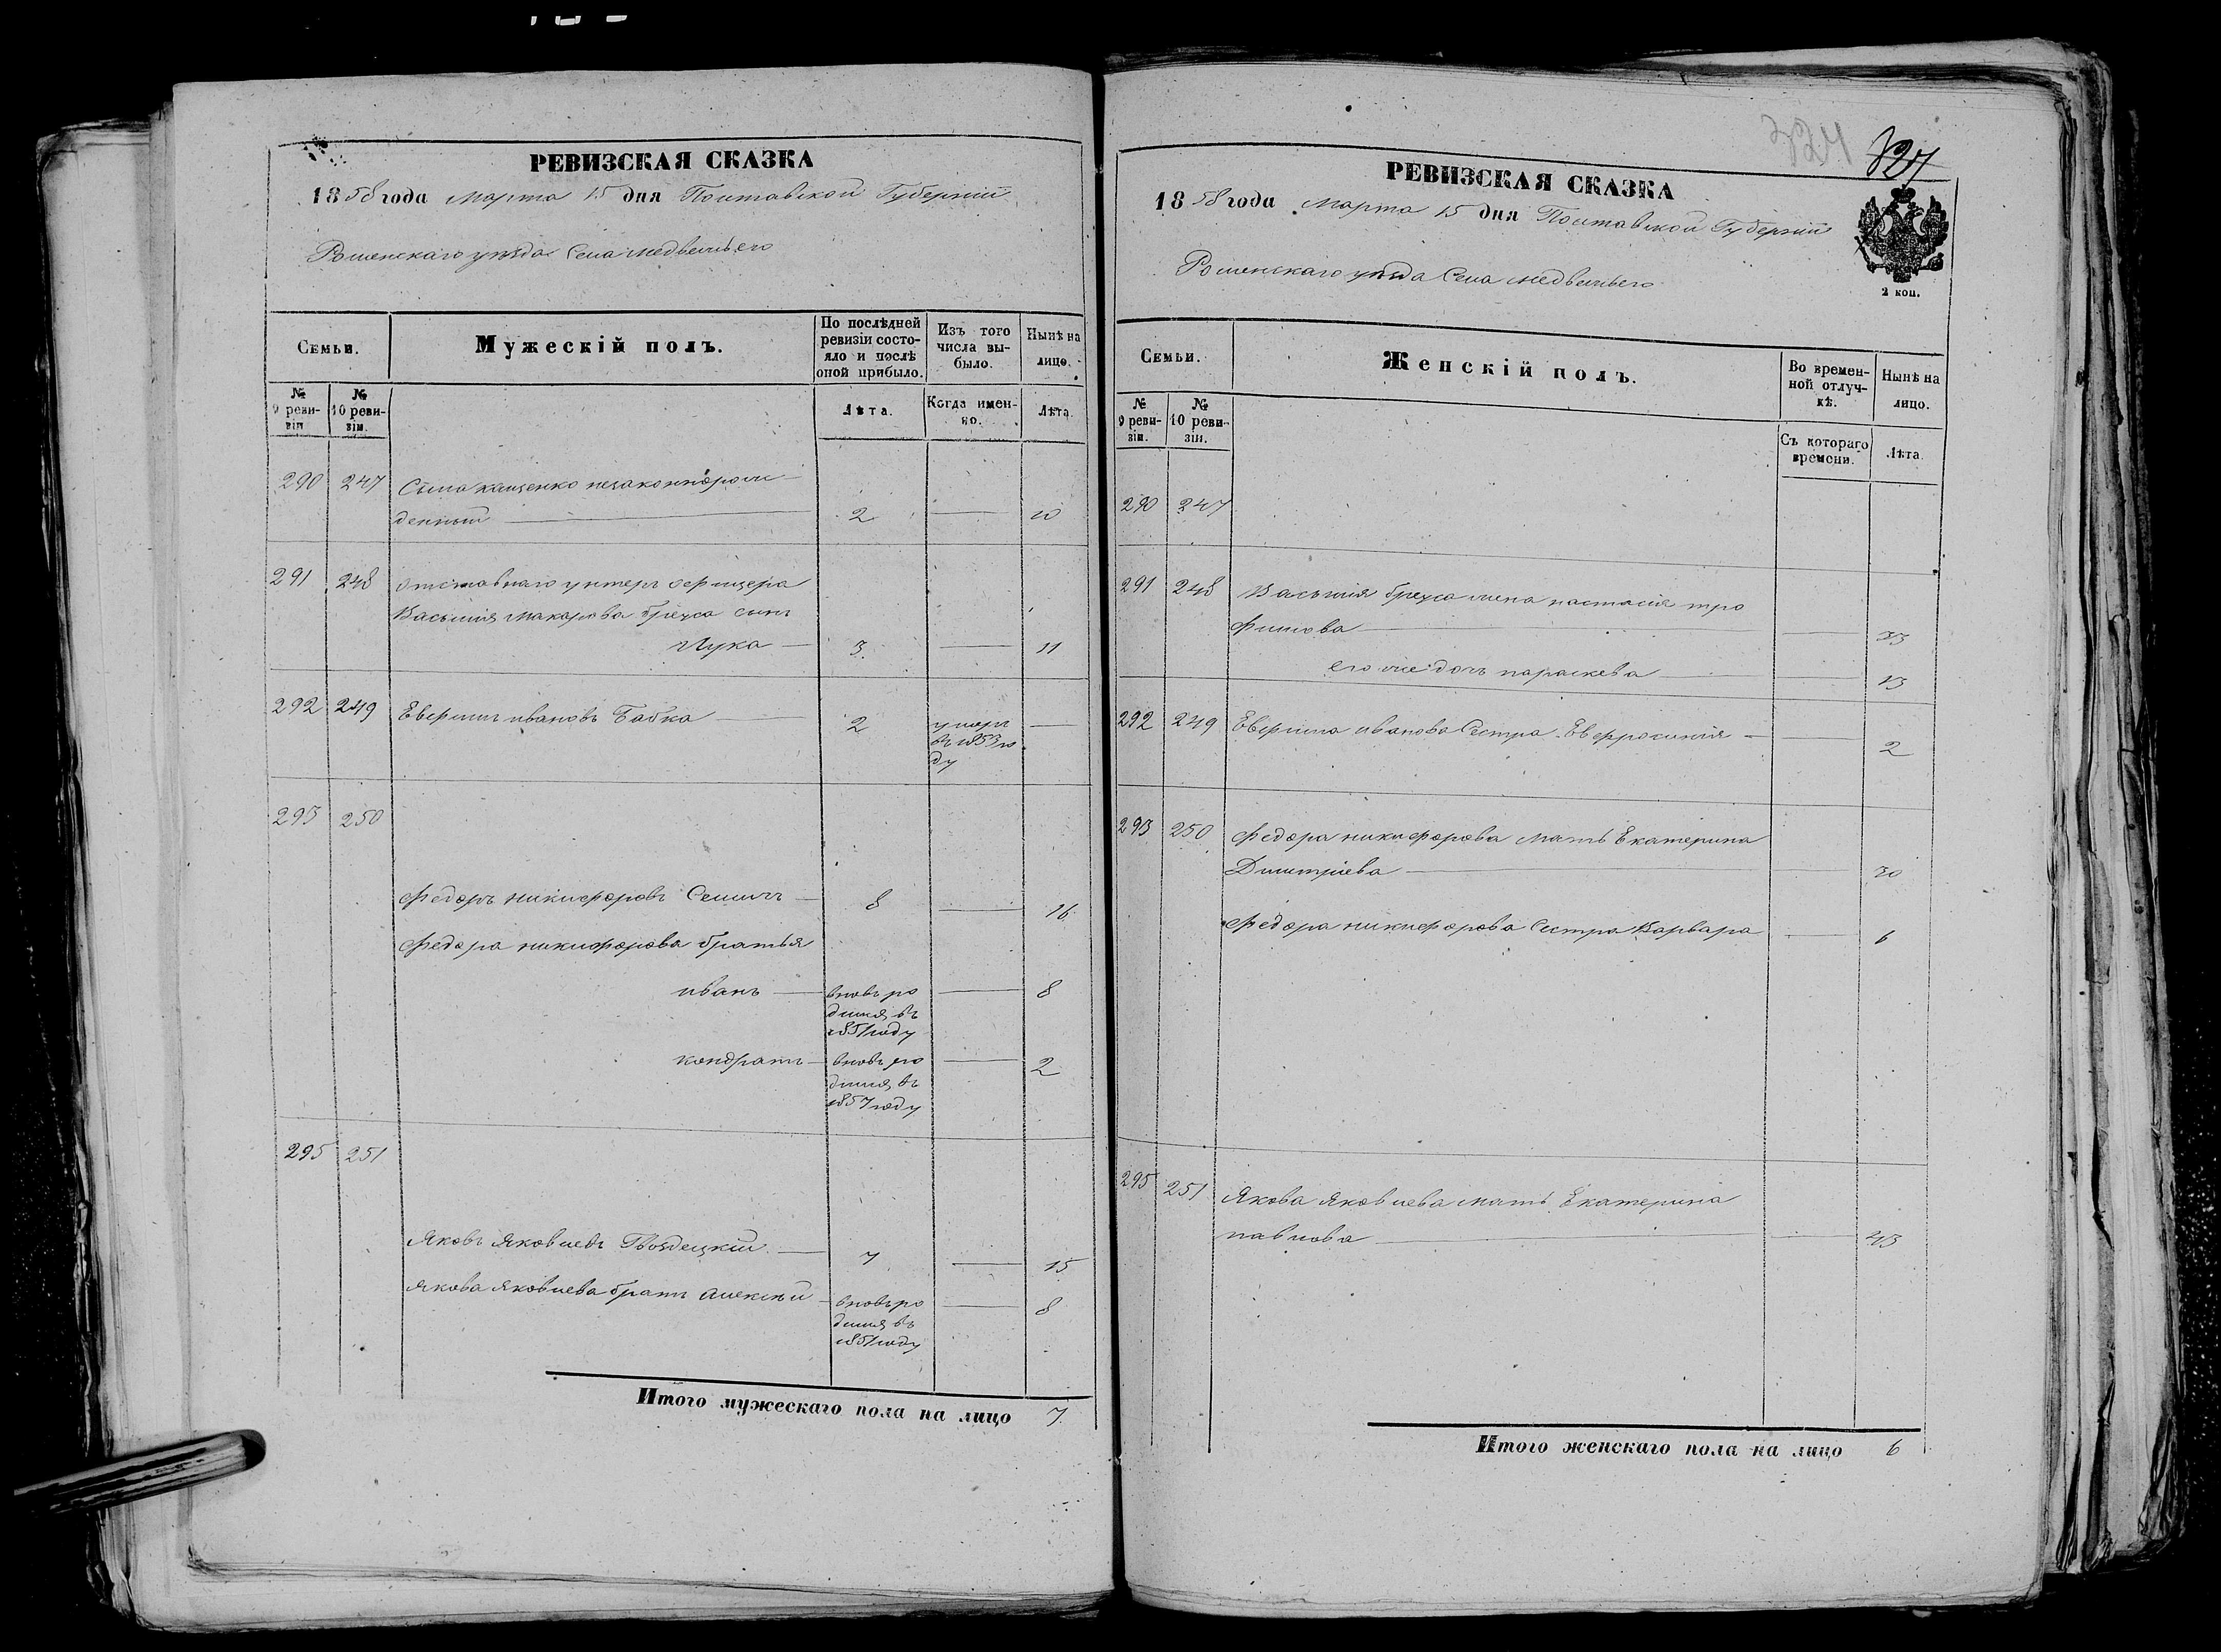 РЕВИЗСКАЯ СКАЗКА
1858 года Марта 15 дня Полтавской Губернии
Роменскаго уезда Села Медвежьего
Семьи.
Мужескій полъ.
По послѣдней ревизіи состояло и послѣ оной прибыло.
Изъ того числа выбыло.
Нынѣ на лицо.
№ 9 ревизіи
№ 10 ревизіи.
Лѣта.
Когда именно.
Лѣта.
290 247 незаконнорож
денный 2 10
291 248 отставнаго унтеръ офицера
Василия Макарова Греуса сынъ
Лука 3 11
292 249 ивановъ Бабка 2 умеръ
въ 1853 го
ду
293 250
Федоръ никифоровъ 8 16
Федора никифорова братья
иванъ вновь ро 8
дился въ
1851 году
кондратъ вновь ро 2
дился въ
1857 году
295 251
Яковъ Яковлевъ Гвоздецкій 7 15
Якова Яковлева братъ алексей вновь ро 8
дился въ
1851 году
Итого мужескаго пола на лицо 7
324
РЕВИЗСКАЯ СКАЗКА
1858 года Марта 15 дня Полтавской Губерніи
Роменскаго уезда Села Медвежьего
2 коп.
Семьи.
Женскій полъ.
Во временной отлучкѣ.
Нынѣ на лицо.
№ 9 ревизіи.
№ 10 ревизіи.
Съ котораго времени.
Лѣта.
290 247
291 248 Василия Греуса жена настасия тро
фимова 33
его же дочь параскева 13
292 249 иванова Сестра Евфросиния 2
293 250 Федора никифорова мать Екатерина
Дмитріева 30
Федора никифорова Сестра Варвара 6
295 251 Якова Яковлева мать Екатерина
павлова 43
Итого женскаго пола на лицо 6